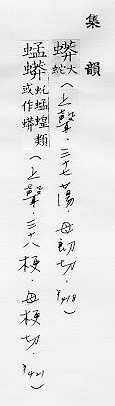 集韻
蟒大蛇(上聲．三十七蕩．母朗切．P418)
蜢蟒虴蜢蝗類或作蟒(上聲．三十八梗．母梗切．P421)